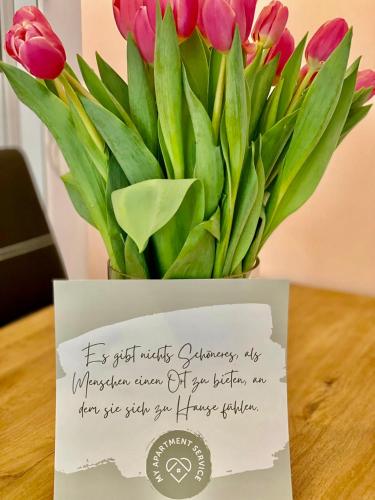 Es gibt nichts Schöneres, als
Menschen einen Ort zu bieten, an
dem sie sich zu Hause fühlen.
MY APARTMENT SERVICE